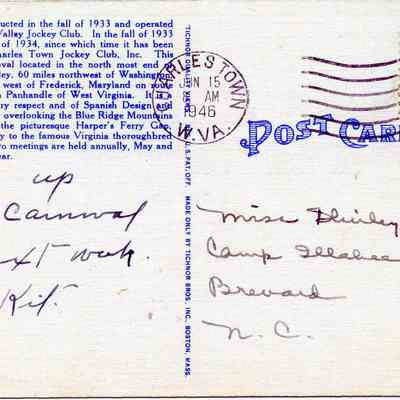 ucted in the fall of 1933 and operated
Valley Jockey Club. In the fall of 1933
of 1934, since which time it has been
harles Town Jockey Club, Inc. This
oval located in the north most end of
ley, 60 miles northwest of Washington,
west of Frederick, Maryland on route
Panhandle of West Virginia. It is a
ry respect and of Spanish Design and
overlooking the Blue Ridge Mountains
the picturesque Harper's Ferry Gap,
y to the famous Virginia thoroughbred
wo meetings are held annually, May and
ear.
up
Carnival
ext week.
Kit.
MADE ONLY BY TICHNOR BROS., INC., BOSTON, MASS.
CHARLES TOWN
JUN 15
AM
1946
W.VA.
POST CAR
Miss Shirley
Camp Illahee
Brevard
N. C.